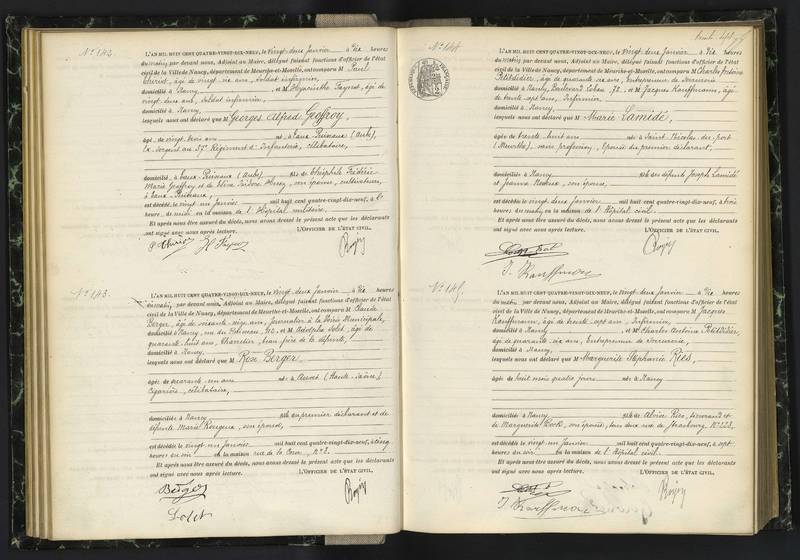 N° 143.
L'AN MIL HUIT CENT QUATRE-VINGT-DIX-NEUF, le vingt deux Janvier à Dix heures
du matin, par devant nous, Adjoint au Maire, délégué faisant fonctions d'officier de l'état
civil de la Ville de Nancy, département de Meurthe-et-Moselle, ont comparu M Paul
Thiriot, âgé de vingt six ans, soldat infirmier,
domicilié à Nancy, et M Hyacinthe Fayret, âgé de
vingt deux ans, soldat infirmier,
domicilié à Nancy
lesquels nous ont déclaré que M Georges Alfred Geoffroy,
âgé de vingt trois ans né à Baux
Ex Sergent au 37e Régiment d'Infanterie, célibataire,
domicilié à (Aube) fils de Théophile Frédéric
Marie Geoffroy et de son épouse, cultivateurs,
à
est décédé le vingt un Janvier mil huit cent quatre-vingt-dix-neuf, à
heure de midi en la maison de l'Hôpital militaire,
Et après nous être assuré du décès, nous avons dressé le présent acte que les déclarants
ont signé avec nous après lecture. L'OFFICIER DE L'ÉTAT CIVIL,
N° 143.
L'AN MIL HUIT CENT QUATRE-VINGT-DIX-NEUF, le vingt deux Janvier à Dix heures
du matin, par devant nous, Adjoint au Maire, délégué faisant fonctions d'officier de l'état
civil de la Ville de Nancy, département de Meurthe-et-Moselle, ont comparu M Claude
Berger, âgé de soixante ans, journalier à la Voirie Municipale,
domicilié à Nancy, et M Adolphe Solet, âgé de
quarante huit ans, Charretier, beau frère de la défunte,
domicilié à Nancy
lesquels nous ont déclaré que M Rose Berger
âgée de quarante un ans née à Auvet (Haute Saône)
Cigarière, célibataire,
domiciliée à Nancy fille du premier déclarant et de
défunte Marie Rougeux, son épouse,
est décédée le vingt un Janvier mil huit cent quatre-vingt-dix-neuf, à cinq
heures du soir en la maison rue de la N° 2.
Et après nous être assuré du décès, nous avons dressé le présent acte que les déclarants
ont signé avec nous après lecture. L'OFFICIER DE L'ÉTAT CIVIL,
Berger
Solet
N° 144
L'AN MIL HUIT CENT QUATRE-VINGT-DIX-NEUF, le vingt deux Janvier à Dix heures
du matin, par devant nous, Adjoint au Maire, délégué faisant fonctions d'officier de l'état
civil de la Ville de Nancy, département de Meurthe-et-Moselle, ont comparu M Charles Antoine
Petitdidier, âgé de quarante six ans, Entrepreneur de Serrurerie
domicilié à Nancy, Boulevard Lobau, 72, et M Jacques Kauffmann, âgé
de trente sept ans, Infirmier,
domicilié à Nancy
lesquels nous ont déclaré que M Marie Lamidé,
âgée de trente huit ans née à Saint Nicolas du port
(Meurthe), sans profession, Epouse du premier déclarant,
domiciliée à Nancy fille de défunts Joseph Lamidé
et Jeanne son épouse,
est décédée le vingt deux Janvier mil huit cent quatre-vingt-dix-neuf, à trois
heures du matin en la maison de l'Hôpital civil.
Et après nous être assuré du décès, nous avons dressé le présent acte que les déclarants
ont signé avec nous après lecture. L'OFFICIER DE L'ÉTAT CIVIL,
J. Kauffmann
N° 145.
L'AN MIL HUIT CENT QUATRE-VINGT-DIX-NEUF, le vingt deux Janvier à Dix heures
du matin, par devant nous, Adjoint au Maire, délégué faisant fonctions d'officier de l'état
civil de la Ville de Nancy, département de Meurthe-et-Moselle, ont comparu M Jacques
Kauffmann, âgé de trente sept ans, Infirmier,
domicilié à Nancy et M Charles Antoine Petitdidier,
âgé de quarante six ans, Entrepreneur de Serrurerie,
domicilié à Nancy
lesquels nous ont déclaré que M Marguerite Stéphanie Ries,
âgée de huit mois quatre jours née à Nancy
domiciliée à Nancy fille de Aloïse Ries, Tisserand et
de Marguerite son épouse, tous deux rue de Strasbourg,
est décédée le vingt un Janvier mil huit cent quatre-vingt-dix-neuf, à sept
heures du soir en la maison de l'Hôpital civil.
Et après nous être assuré du décès, nous avons dressé le présent acte que les déclarants
ont signé avec nous après lecture. L'OFFICIER DE L'ÉTAT CIVIL,
J. Kauffmann